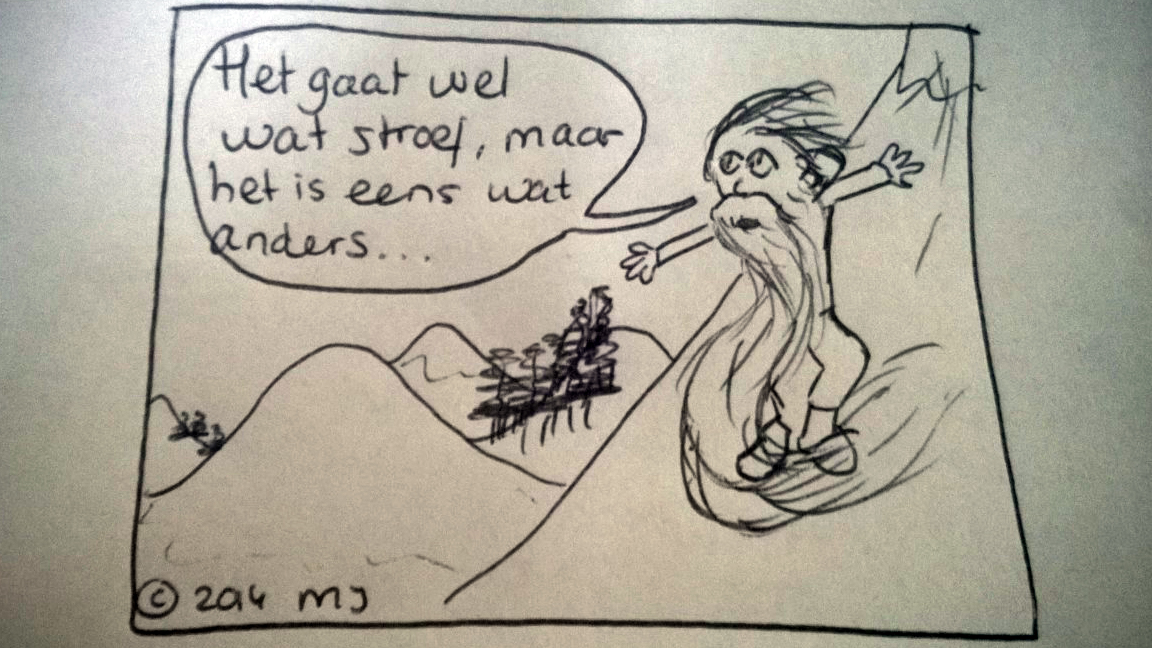 Het gaat wel
wat stroef, maar
het is eens wat
anders...
© 2014 MJ